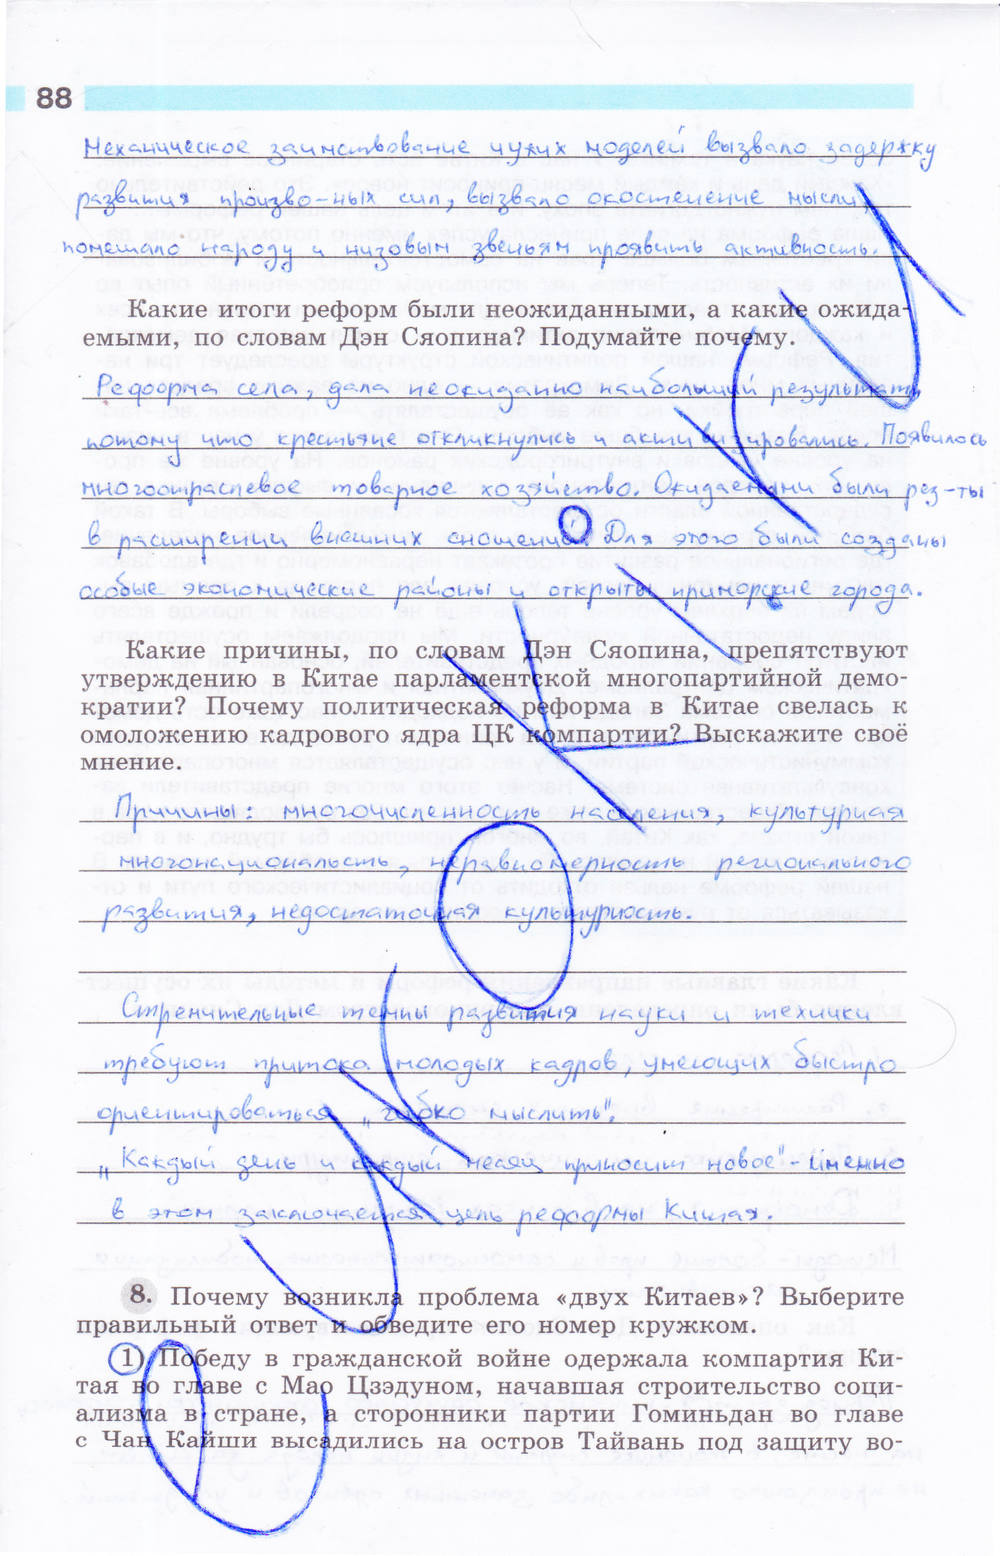 88
Механическое заимствование чужих моделей вызвало задержку
развития произво-ных сил, вызвало окостенение мысли,
помешало народу и низовым звеньям проявить активность.
Какие итоги реформ были неожиданными, а какие ожида-
емыми, по словам Дэн Сяопина? Подумайте почему.
Реформа села, дала неожиданно наибольший результат,
потому что крестьяне откликнулись и активизировались. Появилось
многоотраслевое товарное хозяйство. Ожидаемыми были рез-ты
в расширении внешних сношений. Для этого были созданы
особые экономические районы и открыты приморские города.
Какие причины, по словам Дэн Сяопина, препятствуют
утверждению в Китае парламентской многопартийной демо-
кратии? Почему политическая реформа в Китае свелась к
омоложению кадрового ядра ЦК компартии? Выскажите своё
мнение.
Причины: многочисленность населения, культурная
многонациональсть, неравномерность регионального
развития, недостаточная культурность.
Стремительные темпы развития науки и техники
требуют притока молодых кадров, умеющих быстро
ориентироваться, „гибко мыслить".
„Каждый день и каждый месяц приносит новое" - именно
в этом заключается цель реформы Китая.
8. Почему возникла проблема «двух Китаев»? Выберите
правильный ответ и обведите его номер кружком.
1) Победу в гражданской войне одержала компартия Ки-
тая во главе с Мао Цзэдуном, начавшая строительство соци-
ализма в стране, а сторонники партии Гоминьдан во главе
с Чан Кайши высадились на остров Тайвань под защиту во-